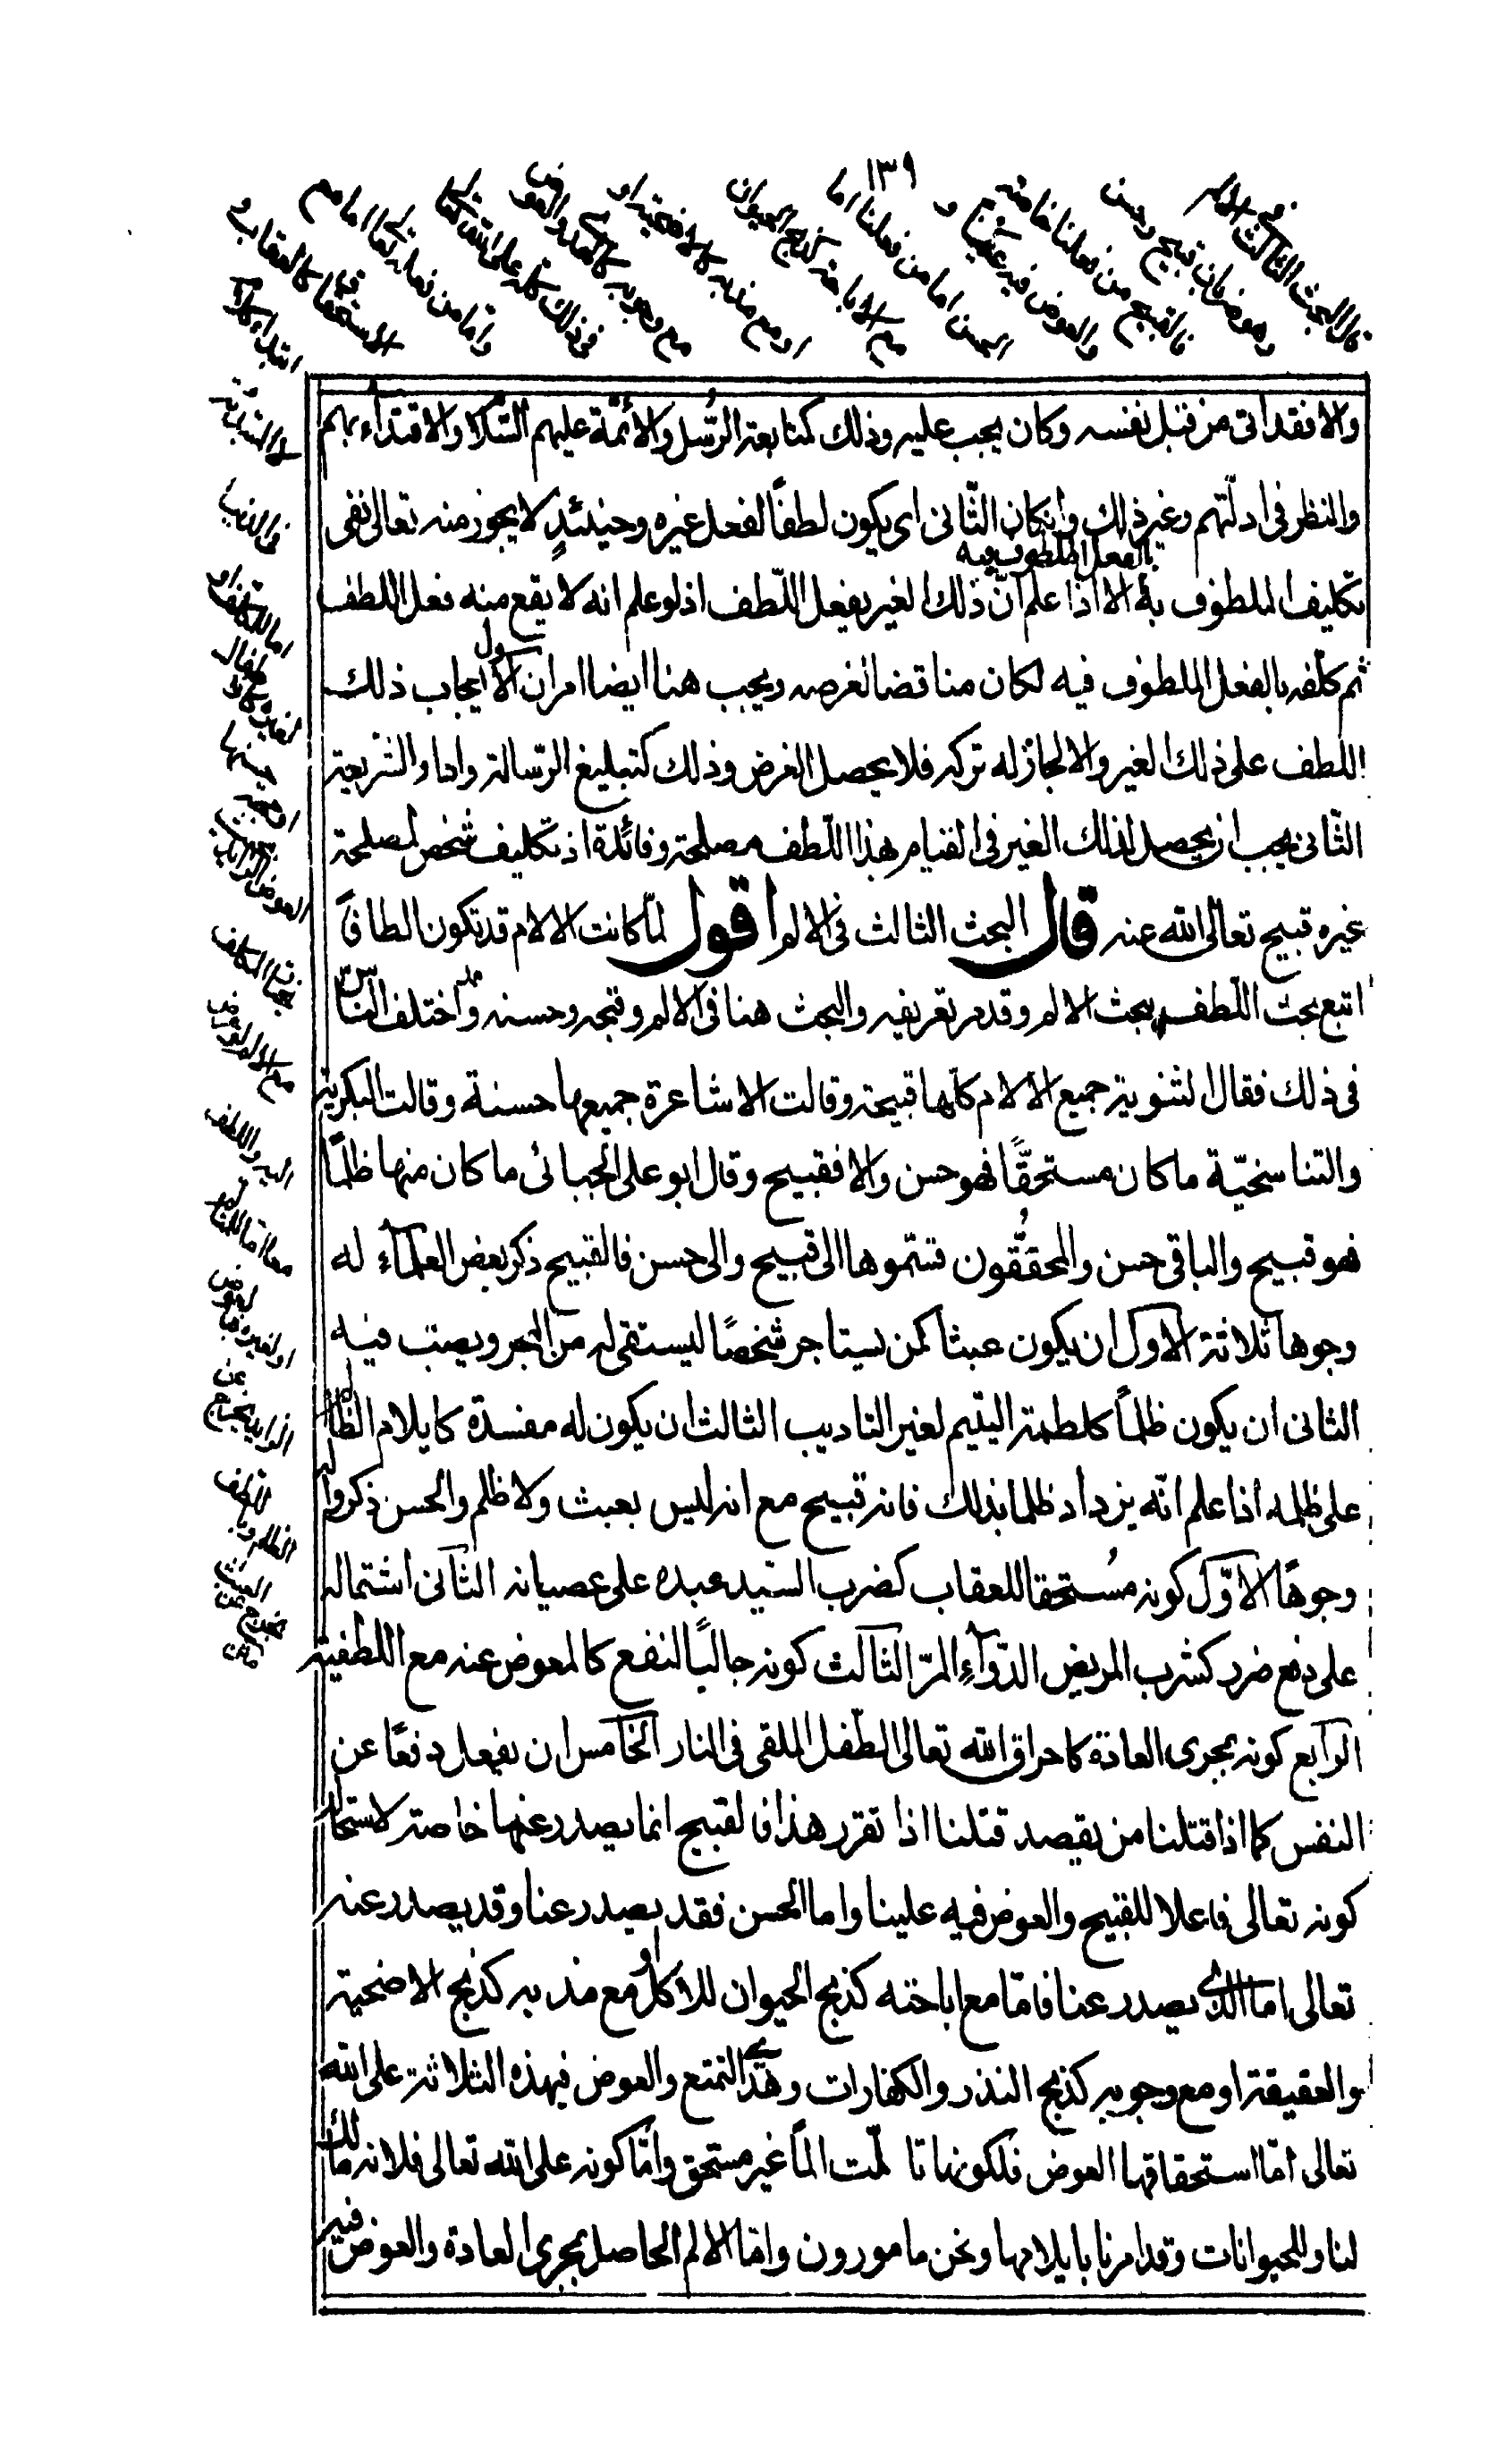 ١٣٩
قال البحث الثالث في الالم
وهو ضربان قبيح وحسن
فالقبيح من فعلنا خاصة
والعوض فيه علينا و
الحسن اما من فعلنا اما
مع الاباحة كذبح الحيوان
او مع ندبه كالاضحية او
مع وجوبه كالهدي والعوض
في ذلك كله على الله تعالى
واما من فعله تعالى اما مع
الاستحقاق كالعقاب و
والا فقد اتى من قبل نفسه وكان يجب عليه وذلك كمتابعة الرسل والأئمة عليهم السّلام والاقتداء بهم
والنظر في ادلّتهم وغير ذلك وان كان الثّانى اى يكون لطفًا لفعل غيره وحينئذٍ لا يجوز منه تعالى نفى
بالفعل الملطوف فيه
تكليف الملطوف به الا اذا علم انّ ذلك الغير يفعل اللّطف اذ لو علم انه لا يقع منه فعل اللطف
ثم كلّفه بالفعل الملطوف فيه لكان مناقضا لغرضه ويجب هنا ايضا امران الاول ايجاب ذلك
اللطف على ذلك الغير والا لجاز له تركه فلا يحصل الغرض وذلك كتبليغ الرّسالة واداء الشّريعة
الثّانى يجب ان يحصل لذلك الغير فى القيام بهذا اللّطف مصلحة وفائدة اذ تكليف شخص لمصلحة
غيره قبيح تعالى الله عنه قال البحث الثالث فى الالم اقول لمّا كانت الالام قد تكون الطافًا
اتبع بحث اللّطف ببحث الالم وقد مر تعريفه والبحث هنا فى الالم وقبحه وحسنه وقد اختلف النّاس
فى ذلك فقال الثنوية جميع الالام كلها قبيحة وقالت الاشاعرة جميعها حسنة وقالت البكرية
والتناسخيّة ما كان مستحقًّا فهو حسن والا فقبيح وقال ابو على الجبائى ما كان منها ظلمًا
فهو قبيح والباقى حسن والمحقّقون قسّموها الى قبيح والى حسن فالقبيح ذكر بعض العلمآء له
وجوها ثلاثة الاول ان يكون عبثا كمن يستاجر شخصًا ليستقى له من البحر ويصبّ فيه
الثانى ان يكون ظلمًا كلطمة اليتيم لغير التاديب الثالث ان يكون له مفسدة كايلام الظّالم
على ظلمه اذا علم انّه يزداد ظلما بذلك فانه قبيح مع انه ليس بعبث ولا ظلم والحسن ذكروا له
وجوهًا الاوّل كونه مُستحقا للعقاب كضرب السّيد عبده على عصيانه الثّانى اشتماله
على دفع ضرر كشرب المريض الدّوآء المرّ الثّالث كونه جالبًا لنفع كالمعوض عنه مع اللطفية
الرّابع كونه بمجرى العادة كاحراق الله تعالى الطّفل الملقى فى النار الخامس ان يفعل دفعًا عن
النفس كما اذا قتلنا من يقصد قتلنا اذا تقرر هذا فالقبيح انما يصدر عنها خاصة لاستحالة
كونه تعالى فاعلا للقبيح والعوض فيه علينا واما الحسن فقد يصدر عنا وقد يصدر عنه
تعالى اما الذى يصدر عنا فامّا مع اباحته كذبح الحيوان للاكل او مع ندبه كذبح الاضحية
والعقيقة او مع وجوبه كذبح النذر والكفارات وهدى التمتع والعوض فى هذه الثلاثة على الله
تعالى امّا استحقاقها العوض فلكونها تالمت المًا غير مستحق وامّا كونه على الله تعالى فلانه مالك
لنا وللحيوانات وقد امرنا بايلامها ونحن مامورون وامّا الالم الحاصل بمجرى العادة والعوض فيه